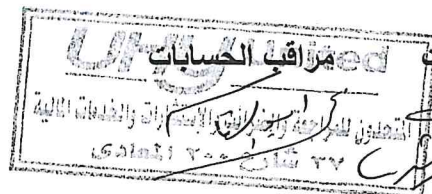 مراقب الحسابات
United
المتحدون للمراجعة والضرائب والاستشارات والخدمات المالية
٢٧ شارع ٢٠٠ المعادى